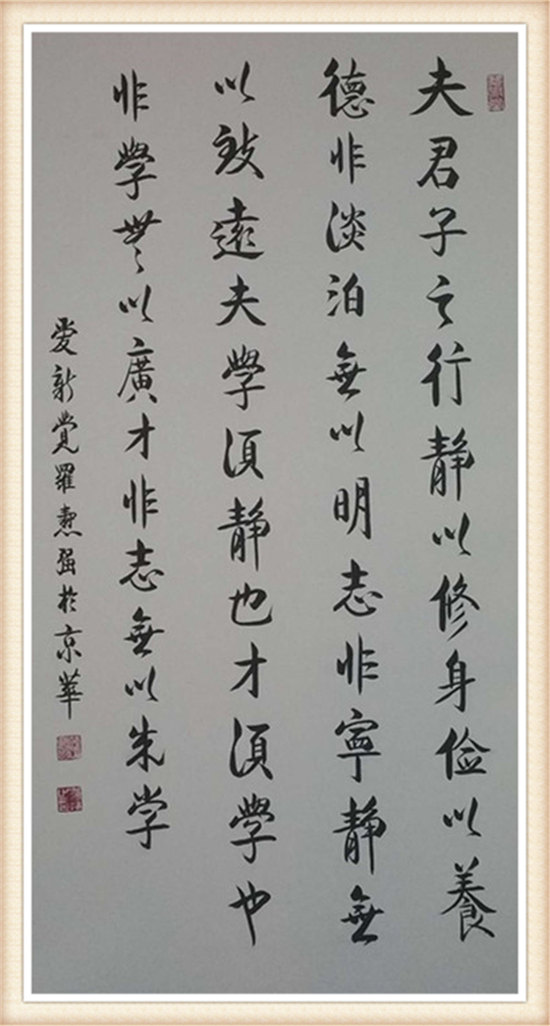 夫君子之行静以修身俭以養
德非淡泊無以明志非寧静無
以致遠夫學須静也才須學也
非學無以廣才非志無以成学
愛新覺羅燾强於京華